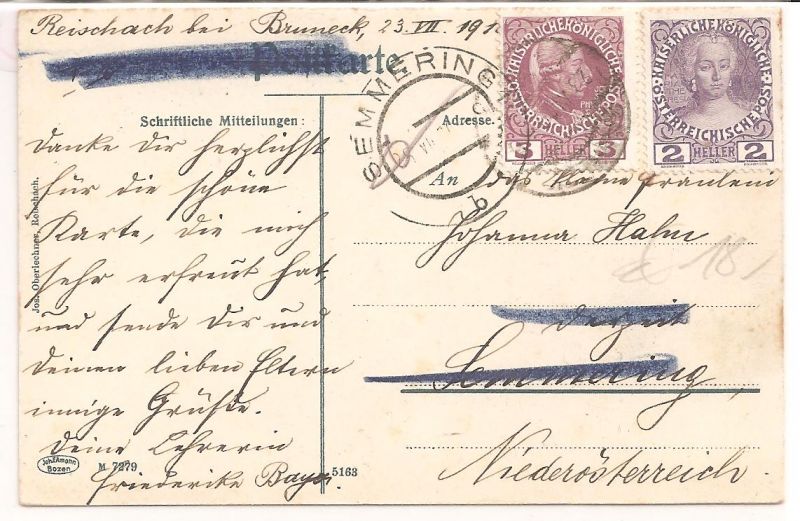 Reischach bei Bruneck, 23. VII. 191
Postkarte
Schriftliche Mitteilungen:
Danke dir herzlichst
für die schöne
Karte, die mich
sehr erfreut hat,
und sende Dir und
Deinen lieben Eltern
innige Grüße.
Deine Lehrerin
Friederike Bayer
Jos. Oberlechner, Reischach.
Joh. F. Amonn
Bozen
M 7279
5163
SEMMERING
b
KAISERLICHE KÖNIGLICHE
ÖSTERREICHISCHE POST
3 HELLER 3
KAISERLICHE KÖNIGLICHE
ÖSTERREICHISCHE POST
2 HELLER 2
Adresse.
An das kleine Fräulein
Johanna Hahn
derzeit
Semmering,
Niederösterreich.
18